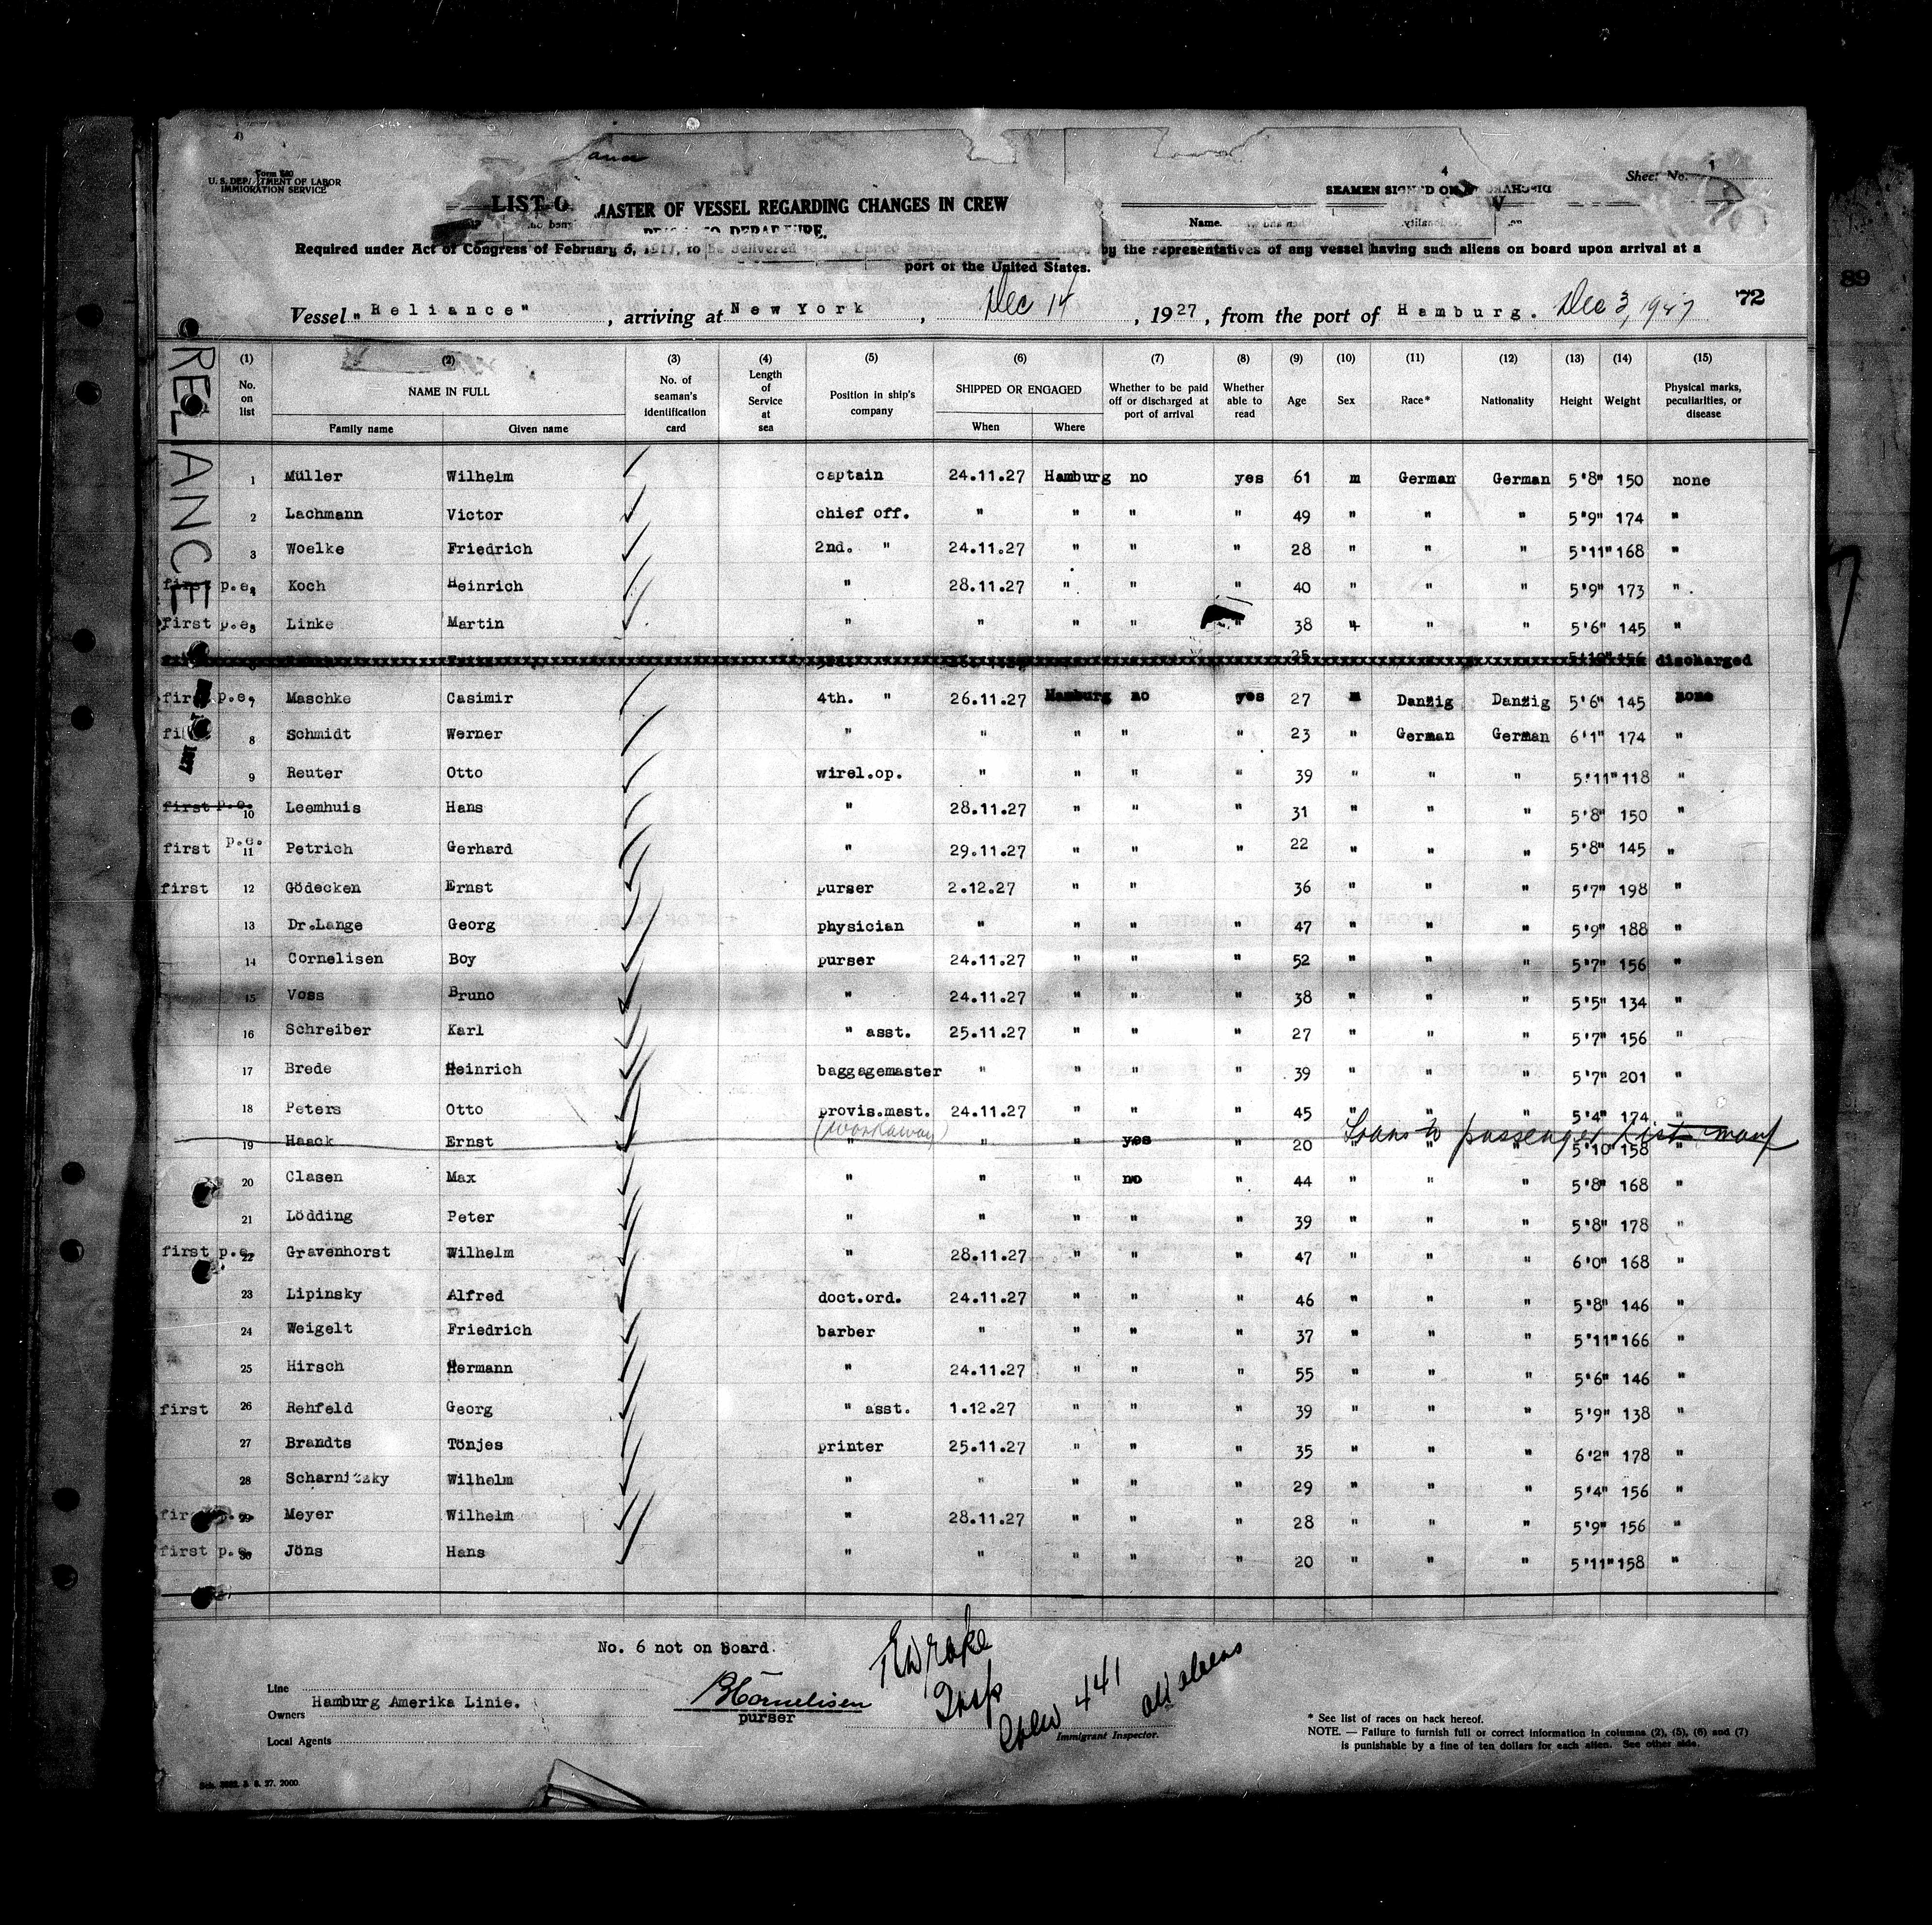 Form 680
U. S. DEP/ TMENT OF LABOR
IMMIGRATION SERVICE
LIST O. MASTER OF VESSEL REGARDING CHANGES IN CREW
TO DEPARTURE.
SEAMEN SIGN'D ON
Name.
Sheet No. 1
Required under Act of Congress of February 5, 1917, to be delivered by the representatives of any vessel having such aliens on board upon arrival at a
port of the United States.
Vessel "Reliance", arriving at New York, Dec 14, 1927, from the port of Hamburg. Dec 3, 1927 72
89
RELIANCE
(1) (2) (3) (4) (5) (6) (7) (8) (9) (10) (11) (12) (13) (14) (15)
No. on list NAME IN FULL Family name Given name No. of seaman's identification card Length of Service at sea Position in ship's company SHIPPED OR ENGAGED When Where Whether to be paid off or discharged at port of arrival Whether able to read Age Sex Race* Nationality Height Weight Physical marks, peculiarities, or disease
1 Müller Wilhelm captain 24.11.27 Hamburg no yes 61 m German German 5'8" 150 none
2 Lachmann Victor chief off. " " " " 49 " " " 5'9" 174 "
3 Woelke Friedrich 2nd. " 24.11.27 " " " 28 " " " 5'11" 168 "
first p.e. 4 Koch Heinrich " 28.11.27 " " " 40 " " " 5'9" 173 "
first p.e. 5 Linke Martin " " " " " 38 " " " 5'6" 145 "
discharged
first p.e. 7 Maschke Casimir 4th. " 26.11.27 Hamburg no yes 27 m Danzig Danzig 5'6" 145 none
8 Schmidt Werner " " " " " 23 " German German 6'1" 174 "
9 Reuter Otto wirel.op. " " " " 39 " " " 5'11" 118 "
first p.e. 10 Leemhuis Hans " 28.11.27 " " " 31 " " " 5'8" 150 "
first p.e. 11 Petrich Gerhard " 29.11.27 " " " 22 " " " 5'8" 145 "
first 12 Gödecken Ernst purser 2.12.27 " " 36 " " " 5'7" 198 "
13 Dr.Lange Georg physician " " " " 47 " " " 5'9" 188 "
14 Cornelisen Boy purser 24.11.27 " " " 52 " " " 5'7" 156 "
15 Voss Bruno " 24.11.27 " " " 38 " " " 5'5" 134 "
16 Schreiber Karl " asst. 25.11.27 " " " 27 " " " 5'7" 156 "
17 Brede Heinrich baggagemaster " " " " 39 " " " 5'7" 201 "
18 Peters Otto provis.mast. 24.11.27 " " " 45 " " " 5'4" 174 "
(workaway)
19 Haack Ernst " " " yes " 20 " " " 5'10" 158 "
Trans to passenger list manf
20 Clasen Max " " " no " 44 " " " 5'8" 168 "
21 Lödding Peter " " " " " 39 " " " 5'8" 178 "
first p.e. 22 Gravenhorst Wilhelm " 28.11.27 " " " 47 " " " 6'0" 168 "
23 Lipinsky Alfred doct.ord. 24.11.27 " " " 46 " " " 5'8" 146 "
24 Weigelt Friedrich barber " " " " 37 " " " 5'11" 166 "
25 Hirsch Hermann " 24.11.27 " " " 55 " " " 5'6" 146 "
first 26 Rehfeld Georg " asst. 1.12.27 " " " 39 " " " 5'9" 138 "
27 Brandts Tönjes printer 25.11.27 " " " 35 " " " 6'2" 178 "
28 Scharnitzky Wilhelm " " " " " 29 " " " 5'4" 156 "
29 Meyer Wilhelm " 28.11.27 " " " 28 " " " 5'9" 156 "
first p.e. 30 Jöns Hans " " " " " 20 " " " 5'11" 158 "
No. 6 not on board.
Line
Owners Hamburg Amerika Linie.
Local Agents
BCornelisen
purser
Insp
Crew 441
all aliens
Immigrant Inspector.
* See list of races on back hereof.
NOTE. — Failure to furnish full or correct information in columns (2), (5), (6) and (7)
is punishable by a fine of ten dollars for each alien. See other side.